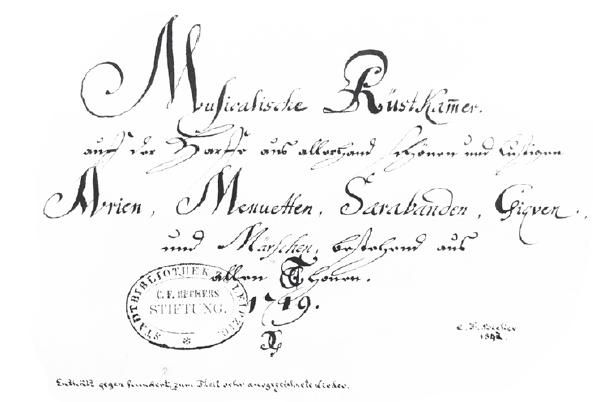 Musicalische Rüstkam̄er.
auff der Harffe aus allerhand schönen und lustigen
Arien, Menuetten, Sarabanden, Giqven,
und Märschen, bestehend aus
allen Thonen.
1719.
STADTBIBLIOTHEK LEIPZIG.
C. F. BECKERS
STIFTUNG.
C. F. Becker
1842.
Enthält gegen hundert, zum Theil sehr ausgezeichnete Lieder.